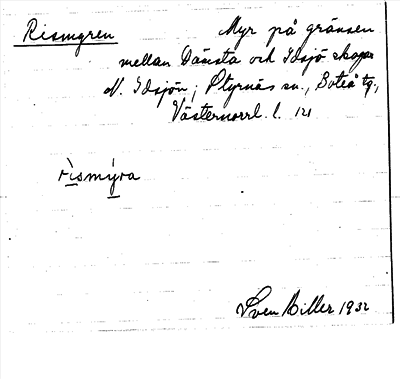 Rismyren Myr på gränsen
mellan Dänsta och Idsjö skogar
N. Idsjön, Styrnäs sn., Boteå tg.,
Västernorrl. l. 121
rismýra
Sven Biller 1932